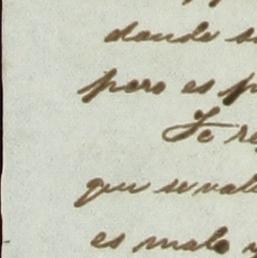 donde s
pero es p
Te re
que se vale
es malo y